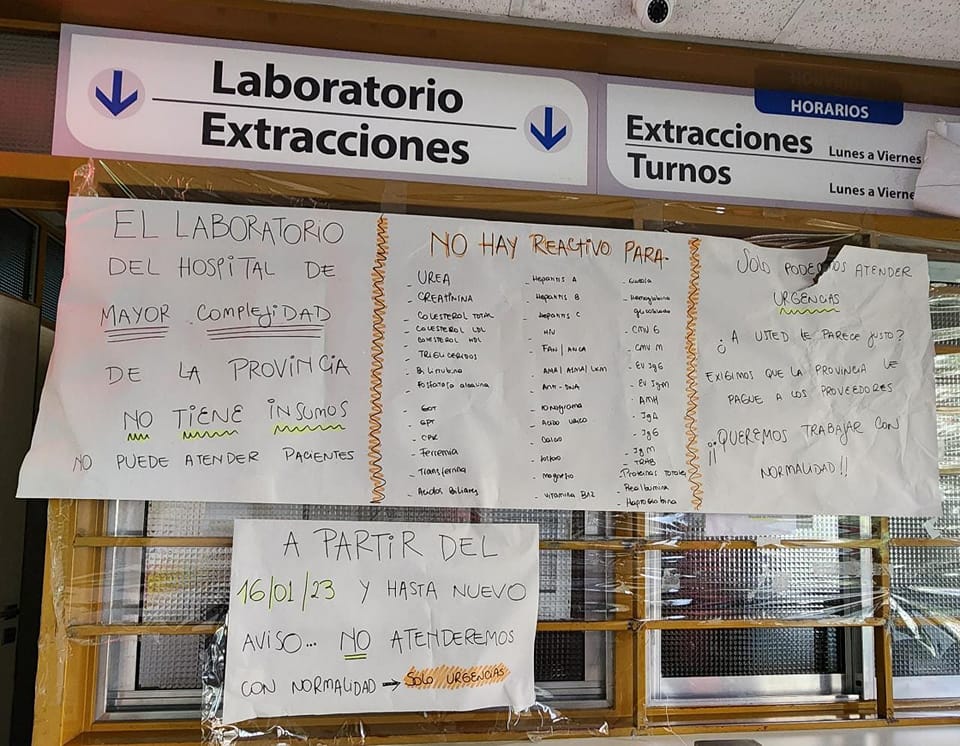 Laboratorio
Extracciones
HORARIOS
Extracciones Lunes a Viernes
Turnos Lunes a Vierne
EL LABORATORIO
DEL HOSPITAL DE
MAYOR COMPLEJIDAD
DE LA PROVINCIA
NO TIENE INSUMOS
NO PUEDE ATENDER PACIENTES
NO HAY REACTIVO PARA-
- UREA
- CREATININA
- COLESTEROL TOTAL
- COLESTEROL LDL
COLESTEROL HDL
- TRIGLICERIDOS
- Bilirrubina
- Fosfatasa alcalina
- GOT
- GPT
- CPK
- Ferremia
- Transferrina
- Acidos Biliares
- Hepatitis A
- Hepatitis B
- Hepatitis C
- FAN/ANCA
- AMA/ASMA/LKM
- Anti-DNA
- Ionograma
- Acido Urico
- Calcio
- Fosforo
- Magnesio
- Vitamina B12
- Hemoglobina
glicosilada
- CMV G
- CMV M
- EV IgG
- EV IgM
- AMH
- IgA
- IgG
- IgM
- TRAB
- Proteinas Totales
- Prealbumina
- Haptoglobina
SOLO PODEMOS ATENDER
URGENCIAS
¿A USTED LE PARECE JUSTO?
EXIGIMOS QUE LA PROVINCIA LE
PAGUE A LOS PROVEEDORES
¡¡QUEREMOS TRABAJAR CON
NORMALIDAD!!
A PARTIR DEL
16/01/23 Y HASTA NUEVO
AVISO... NO ATENDEREMOS
CON NORMALIDAD → SOLO URGENCIAS